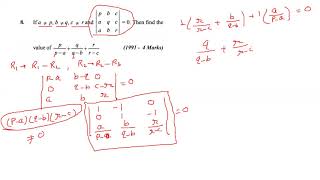 8. If a ≠ p, b ≠ q, c ≠ r and | p b c | = 0. Then find the
| a q c |
| a b r |
value of p/(p-a) + q/(q-b) + r/(r-c) (1991 - 4 Marks)
R₁ → R₁ - R₂, R₂ → R₂ - R₃
| p-a b-q 0 |
| 0 q-b c-r | = 0
| a b r |
(p-a)(q-b)(r-c) | 1 -1 0 |
≠ 0 | 0 1 -1 | = 0
| a/(p-a) b/(q-b) r/(r-c) |
1(r/(r-c) + b/(q-b)) + 1(a/(p-a)) = 0
q/(q-b) + r/(r-c)